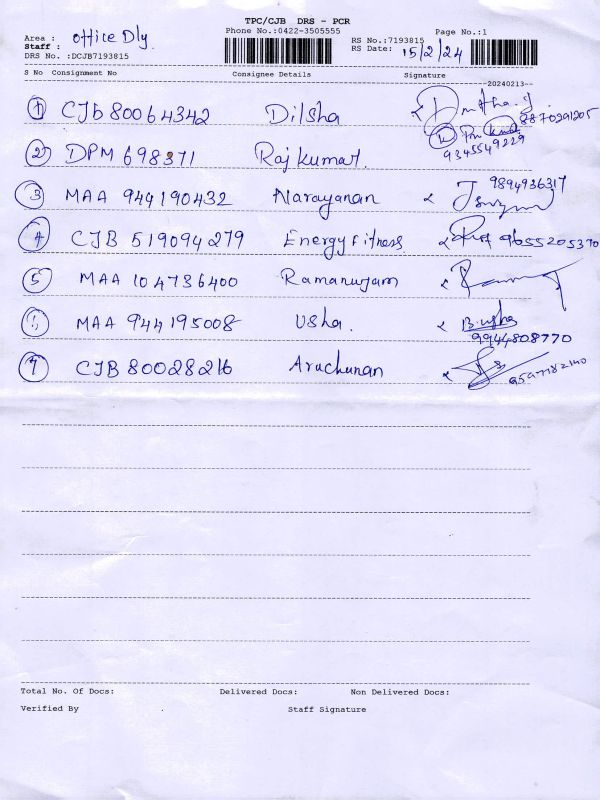 TPC/CJB DRS - PCR
Phone No.:0422-3505555
Area : office Dly.
Staff :
DRS No. :DCJB7193815
RS No.:7193815
Page No.:1
RS Date: 15/2/24
S No Consignment No Consignee Details Signature
--20240213--
1 CJB 80064342 Dilsha 8870291205
2 DPM 698371 Rajkumar. 9345549229
3 MAA 944190432 Narayanan 9894936317
4 CJB 519094279 Energy fitness 9655205370
5 MAA 104736400 Ramanujam
MAA 944195008 Usha. B. usha
9944808770
7 CJB 80028216 Aruchunan
Total No. Of Docs: Delivered Docs: Non Delivered Docs:
Verified By . Staff Signature